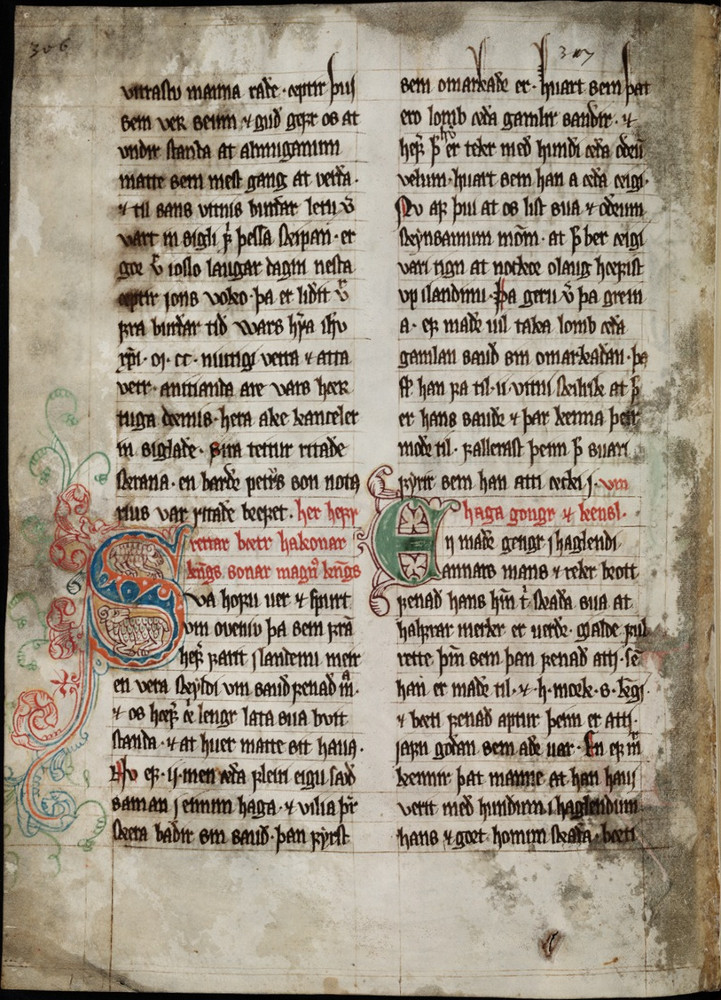 306
307
vitrastu manna rade · eptir þui
sem ver seum ⁊ gud gefr os at
vndir standa at almuganum
matte sem mest gang at verda ·
⁊ til sans vitnis burdar letu v̄
vart in sigli f̄ þessa skipan · er
gor v̄ i oslo laugar dagin nesta
eptir jons voko · þa er lidit v̄
fra burdar tid wars hr̄a ihū
xp̄i · m · cc · nutigi vetra ⁊ atta
vetr · attianda are vars
tuga doms · herra ake kanceler
in siglade · sira teitur ritade
klerkr · en bardr petrs son nota
rius var ritade breft · her hefr
rettar boetr hakonar
kngs sonar magnꝰ kngs
Sva hofu ver ⁊ spurt
vm oveniu þa sem fra
hefr farit j landenu meir
en vera skyldi vm saud renad m̄ ·
⁊ os hefr lengr lata sua buit
standa · ⁊ at huer matte sit hava ·
Nv ef · ij · men eda fleiri eigu saud
saman j einum haga · ⁊ vilia þr̄
skera badir sin saud · þan fyrst
sem omarkade er · huart sem þat
ero lomb eda gamlir saudir · ⁊
hefr þ er teker med hundi eda odrū
velum · huart sem han a eda eigi ·
Nv af þui at os list sua ⁊ odrum
skynsamum mom · at þ ber eigi
vari tign at nockoro olaug hefist
vp i landinu · þa geru v̄ þa grein
a · ef madr vil taka lomb eda
gamlan saud sin omarkadan · þa
han fa til · ii · vitni skilrik at þ
er hans saudr ⁊ þar kenna þeir
mode til · fallerast þeim þ suari
fyrir sem han atti ecki j · vm
haga gongr ⁊ kensl ·
En madr gengr j haglendi
annars mans ⁊ rekr brott
fenad hans hm̄ t̄ skada sua at
halfrar merkr er verdr · gialde ful
rette þm̄ sem þan fenad atti · sē
han er madr til · ⁊ · h · mork · s · kgi ·
⁊ boeti fenad aptur þeim er atti
jafn godan sem adr uar · En ef m̄
kennir þat manne at han havi
verit med hundum i haglendum
hans ⁊ gort honum skada · boeti